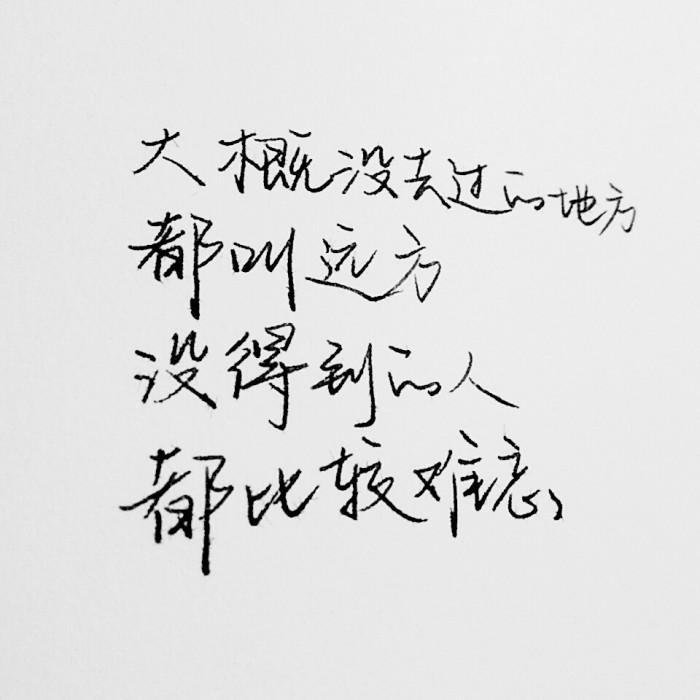 大概没去过的地方
都叫远方
没得到的人
都比较难忘